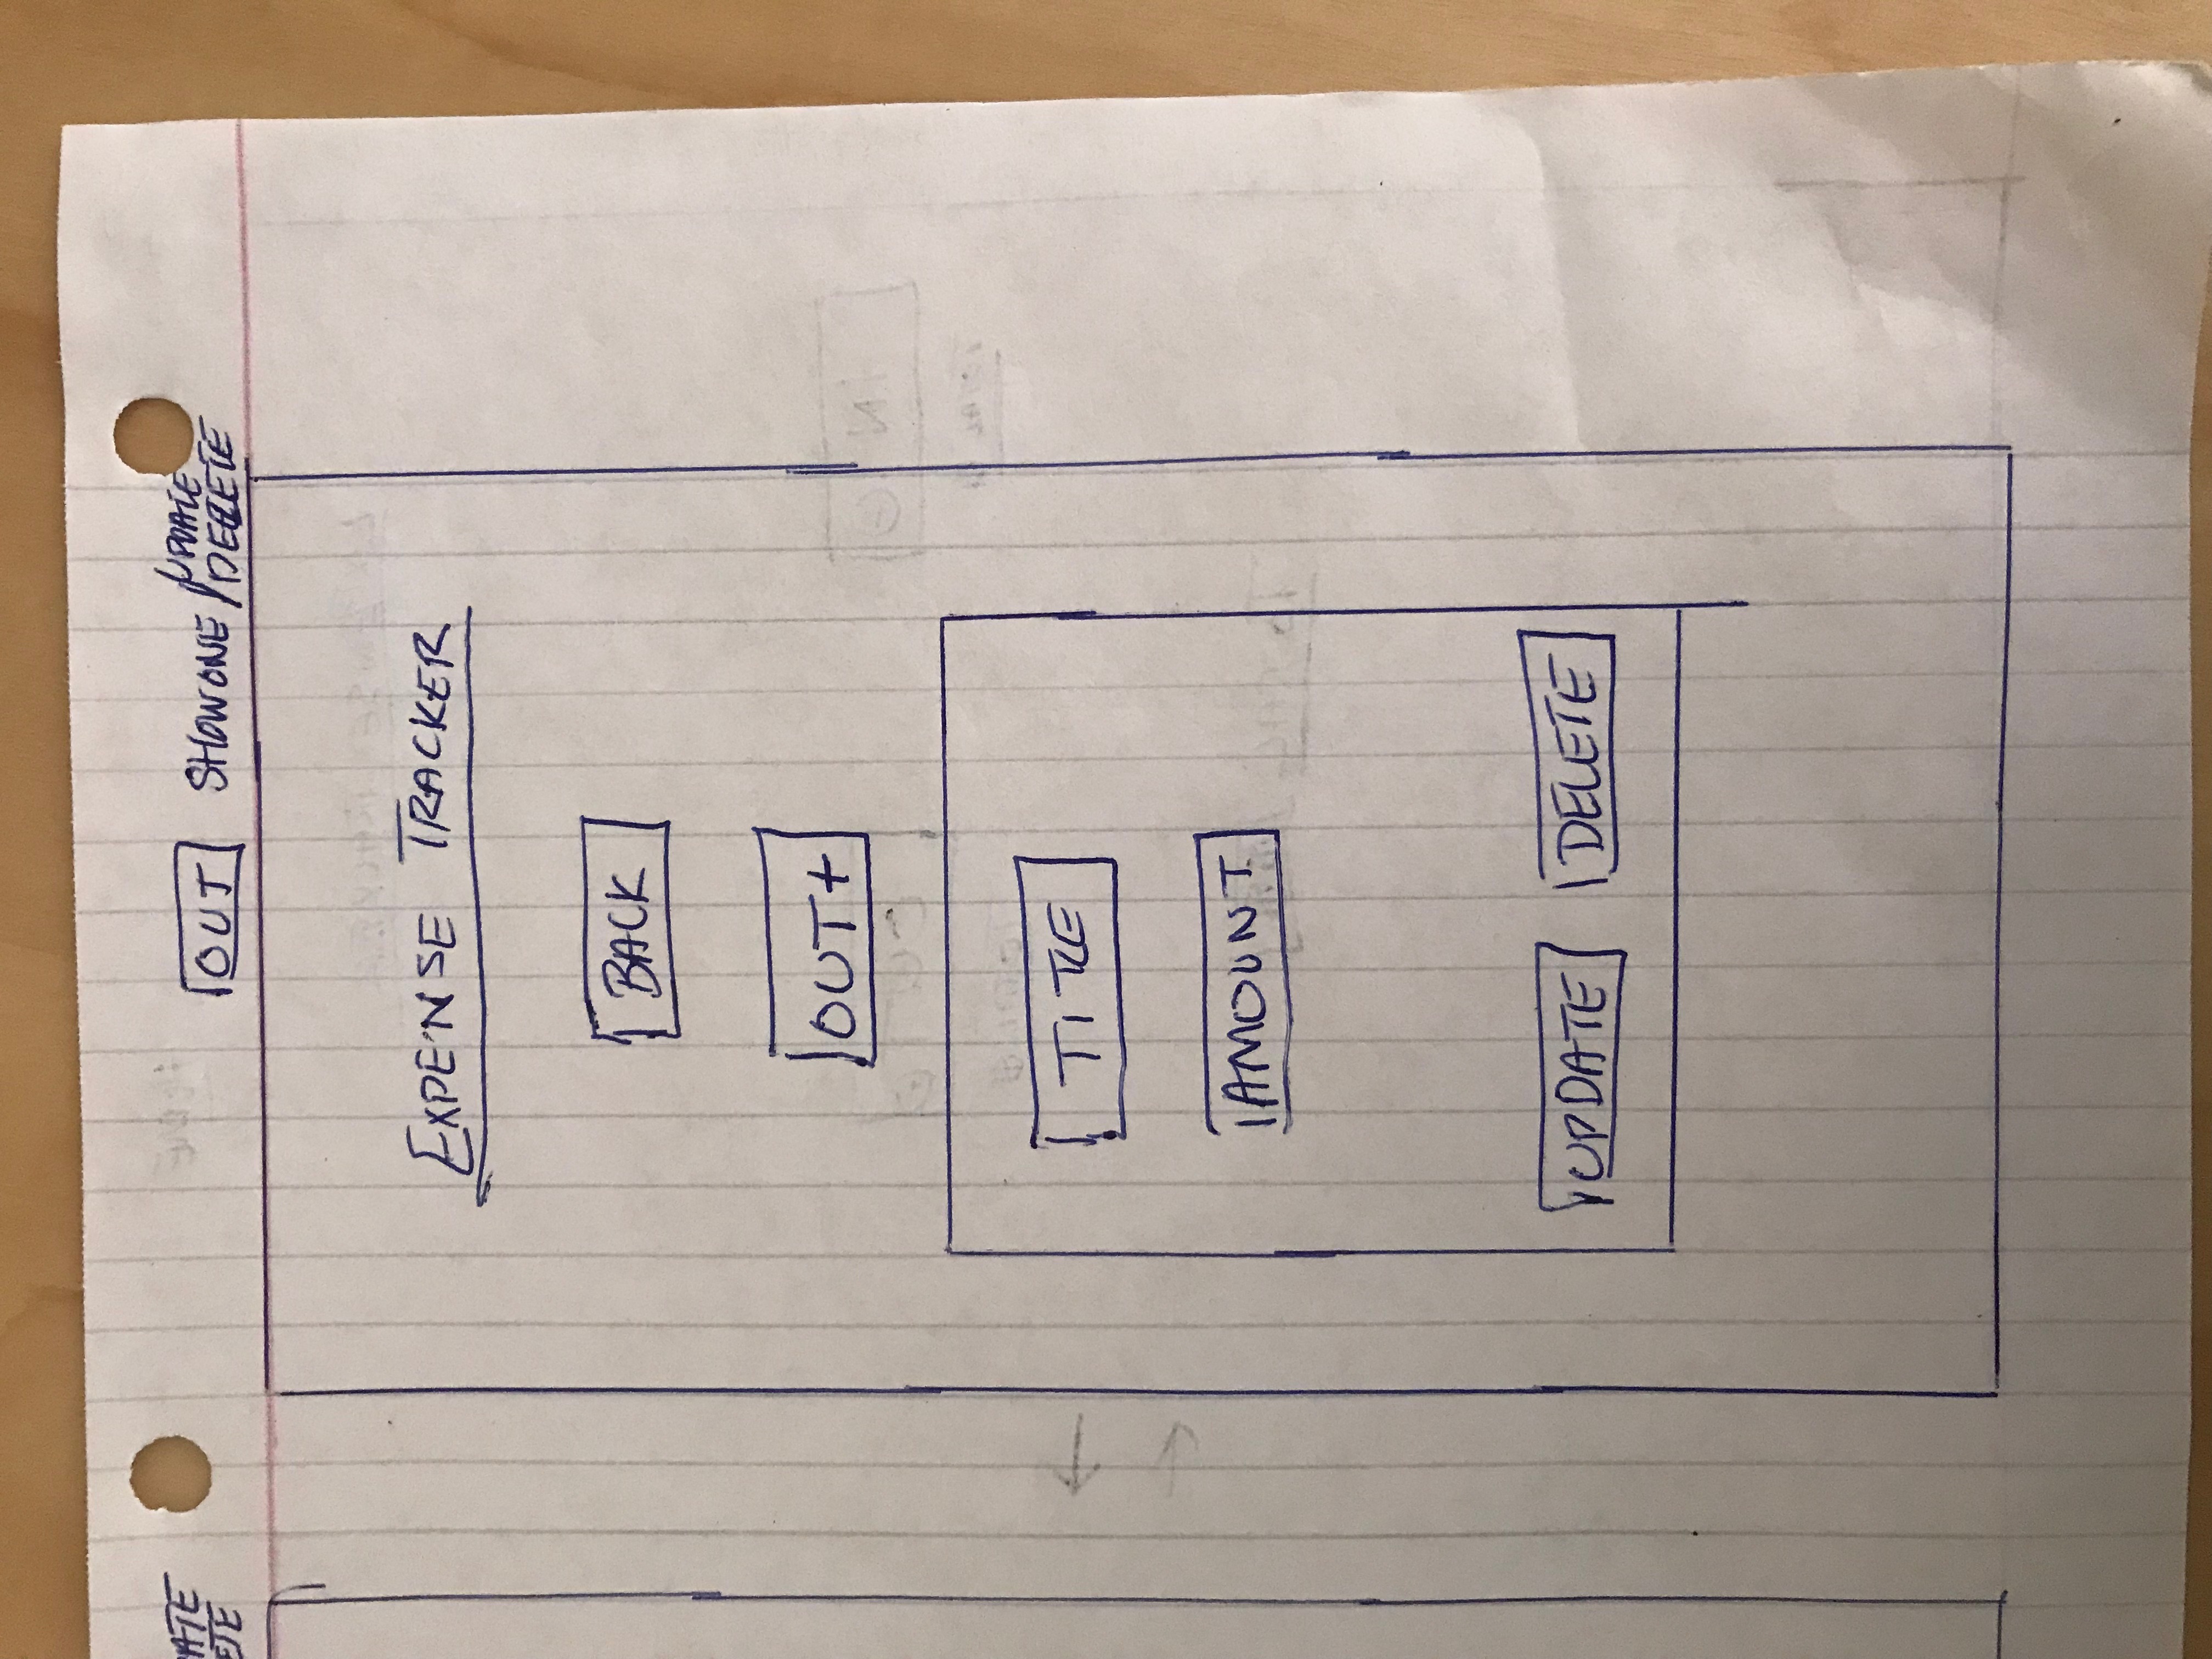 OUT SHOWONE / UPDATE
DELETE
EXPENSE TRACKER
BACK
OUT+
TITLE
AMOUNT
UPDATE DELETE